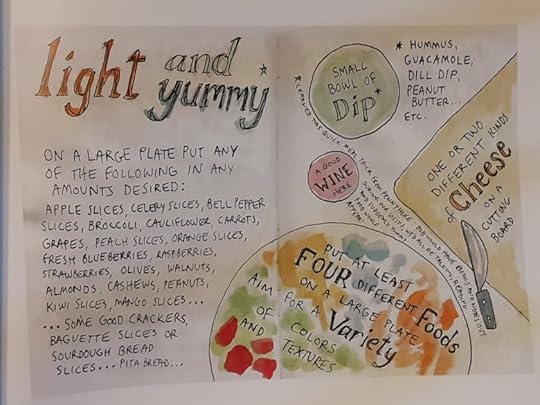 light and yummy *
ON A LARGE PLATE PUT ANY
OF THE FOLLOWING IN ANY
AMOUNTS DESIRED:
APPLE SLICES, CELERY SLICES, BELL PEPPER
SLICES, BROCCOLI, CAULIFLOWER, CARROTS,
GRAPES, PEACH SLICES, ORANGE SLICES,
FRESH BLUEBERRIES, RASPBERRIES,
STRAWBERRIES, OLIVES, WALNUTS,
ALMONDS, CASHEWS, PEANUTS,
KIWI SLICES, MANGO SLICES...
...SOME GOOD CRACKERS,
BAGUETTE SLICES OR
SOURDOUGH BREAD
SLICES... PITA BREAD...
SMALL
BOWL OF
Dip*
* HUMMUS,
GUACAMOLE,
DILL DIP,
PEANUT
BUTTER...
ETC.
* LEARNED THIS QUICK MEAL TRICK FROM
A GOOD
WINE
HERE
ONE OR TWO
DIFFERENT KINDS
of Cheese
ON A
CUTTING
BOARD
PUT AT LEAST
FOUR DIFFERENT Foods
ON A LARGE PLATE
AIM FOR A Variety
OF COLORS
AND TEXTURES